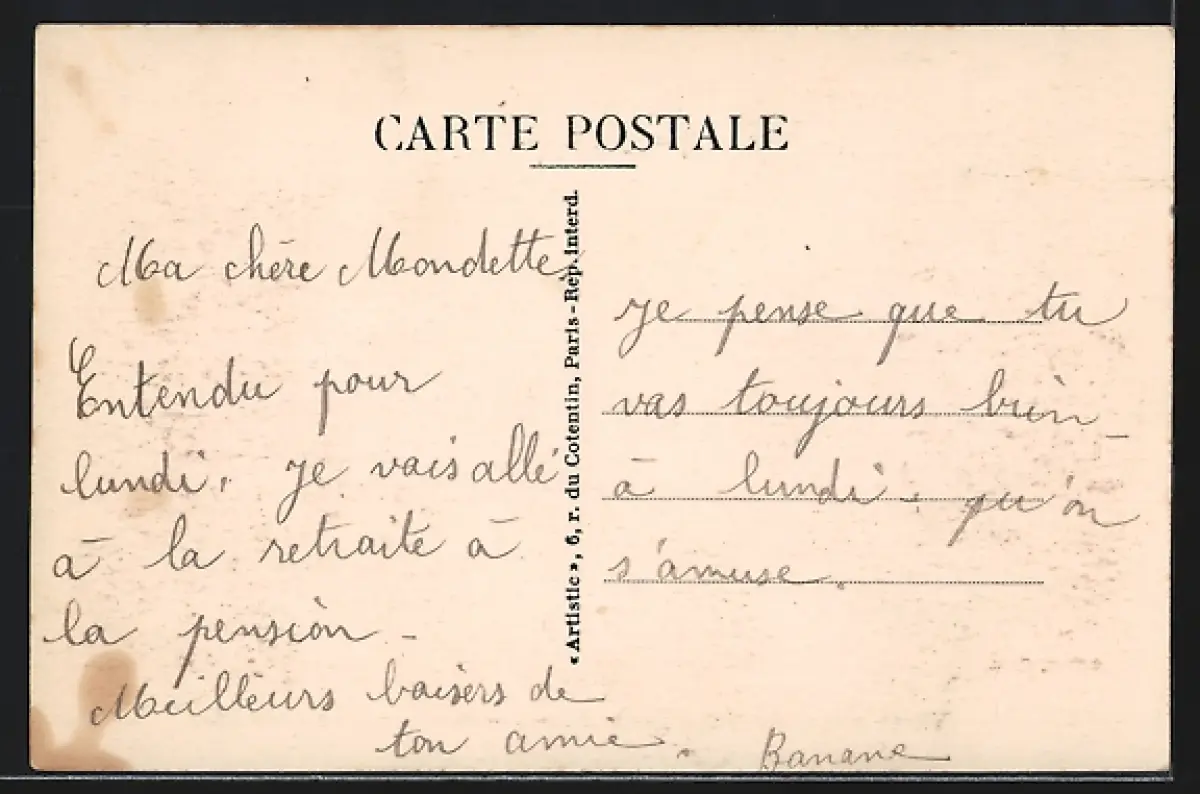 CARTE POSTALE
Ma chère Mondette,
Entendu pour
lundi, je vais allé
à la retraite à
la pension -
Meilleurs baisers de
ton amie.
Banane
« Artistic », 6, r. du Cotentin, Paris - Rep. interd.
je pense que tu
vas toujours bien -
à lundi, qu'on
s'amuse.